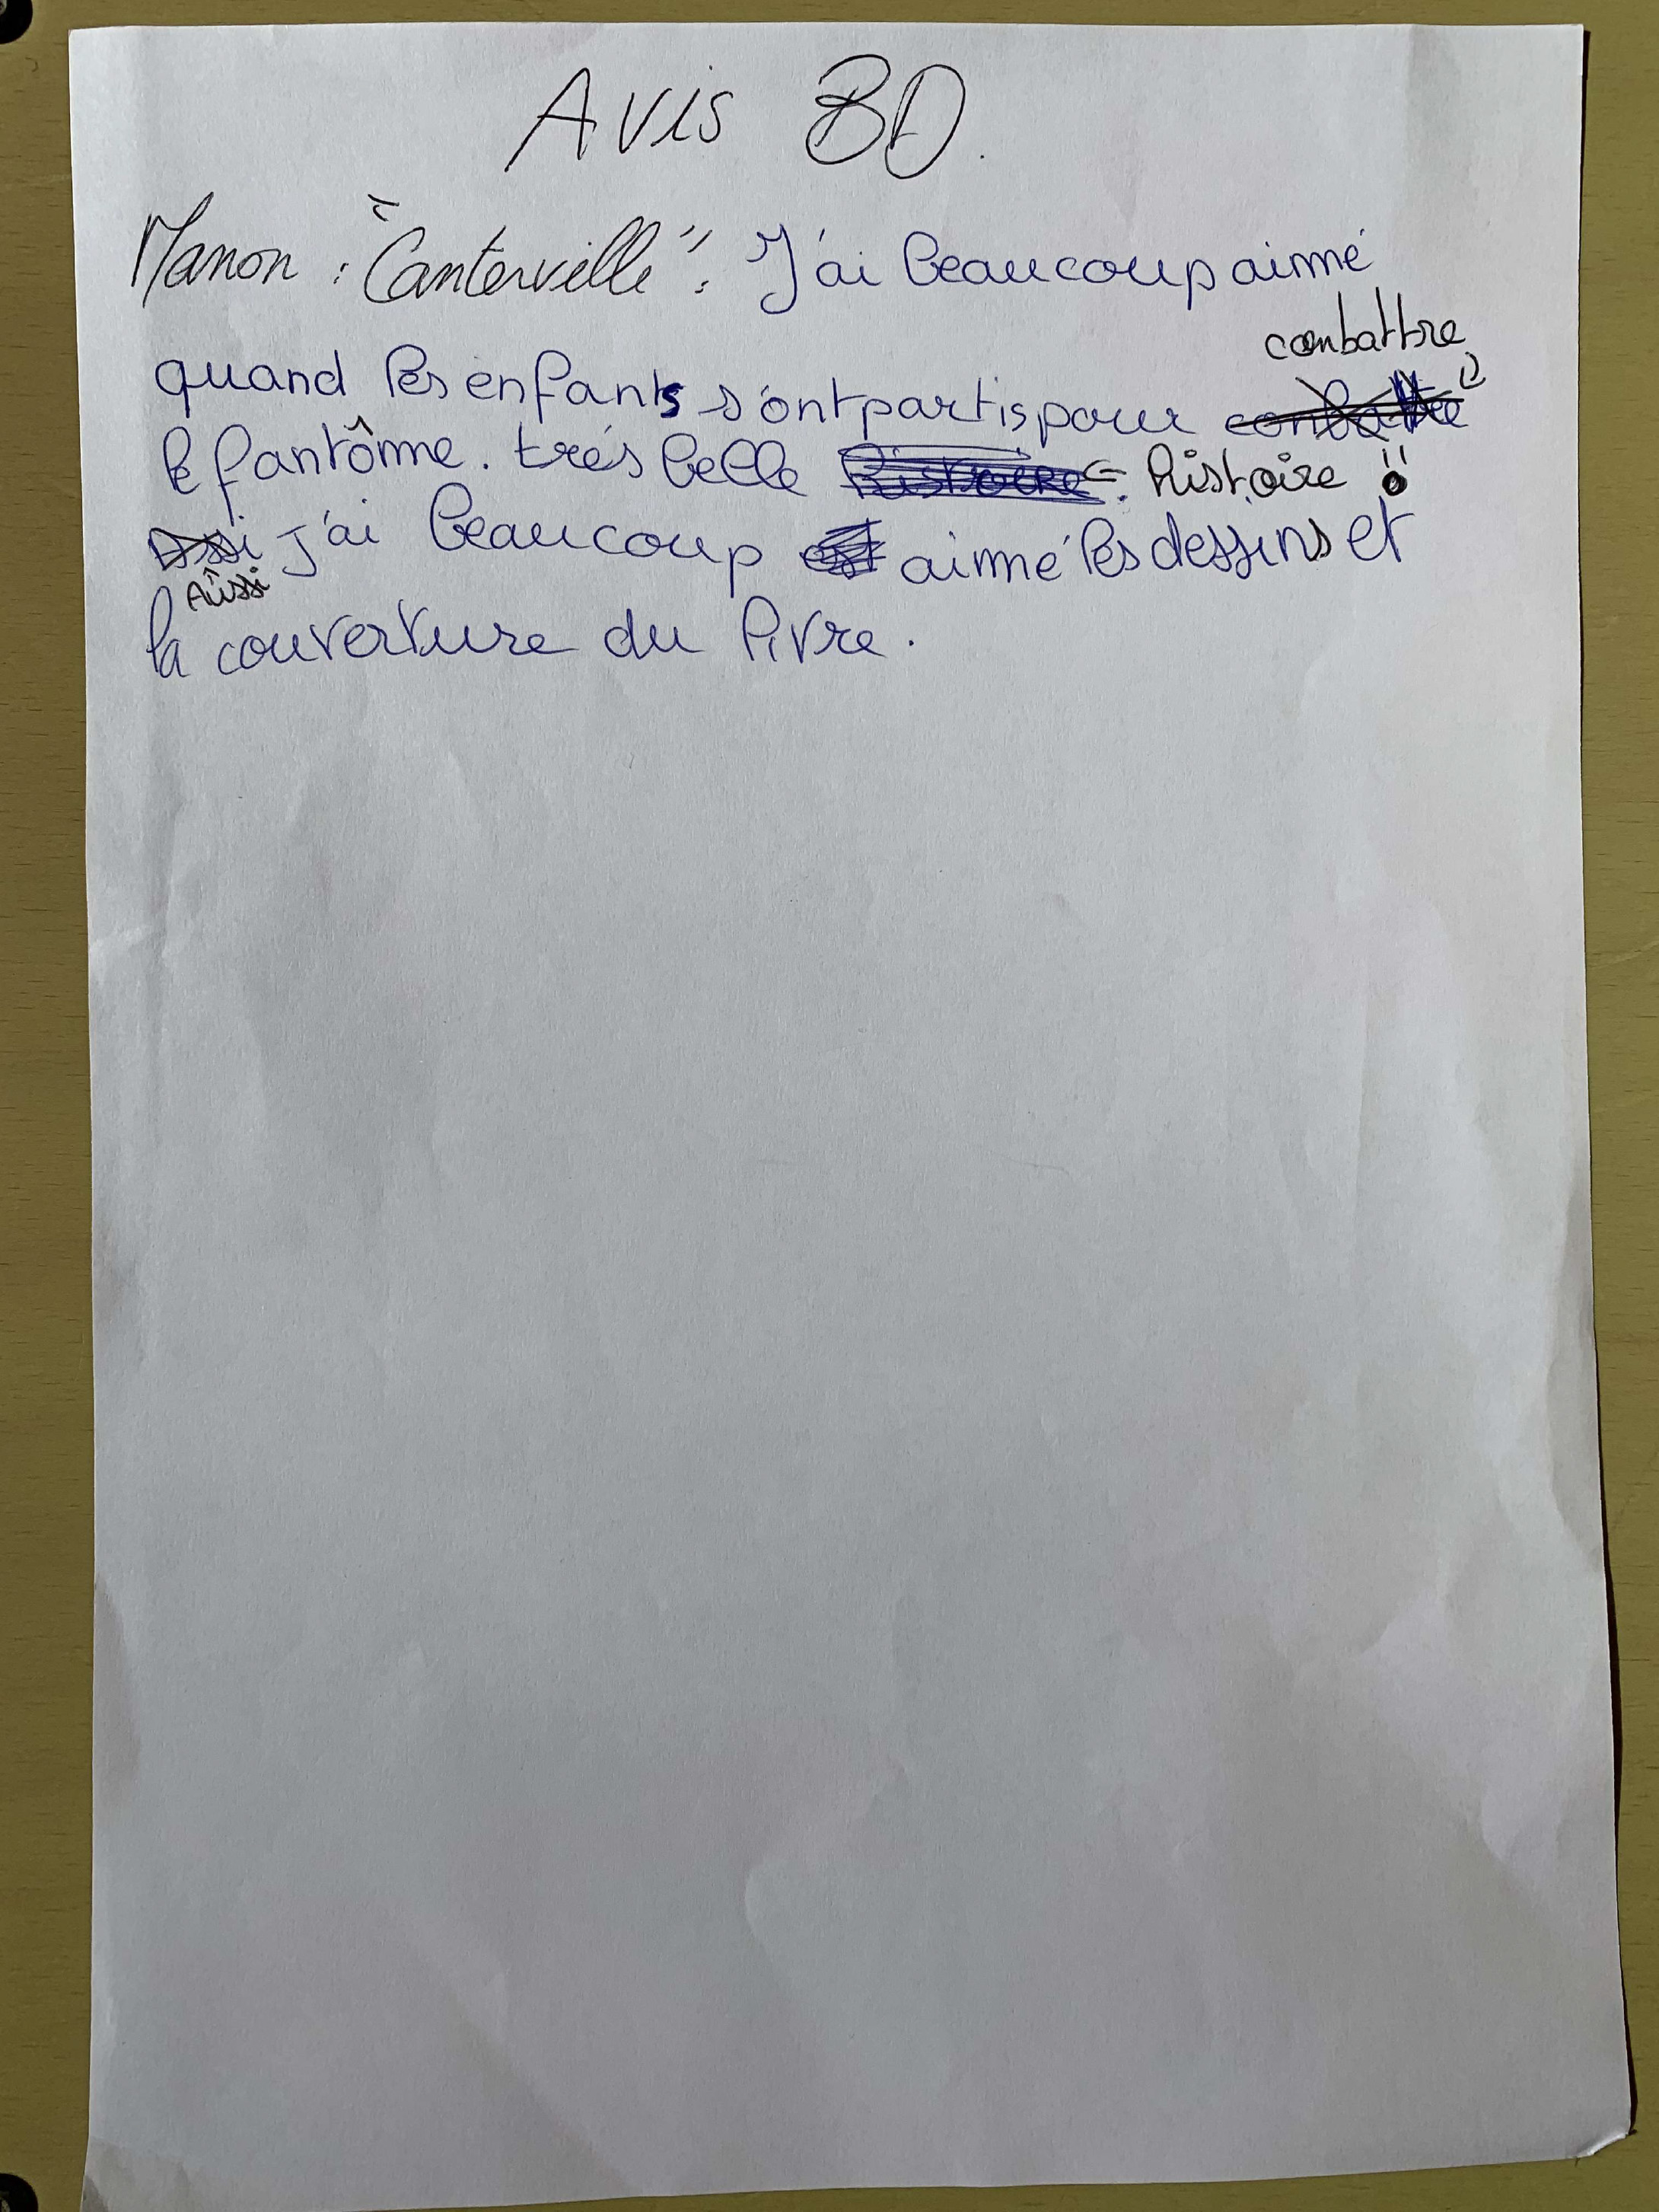 Avis BD.
Manon : "Canterville" : J'ai beaucoup aimé
combattre
quand les enfants s'ont partis pour
le fantôme. très belle histoire !
j'ai beaucoup aimé les dessins et
Aussi
la couverture du livre.